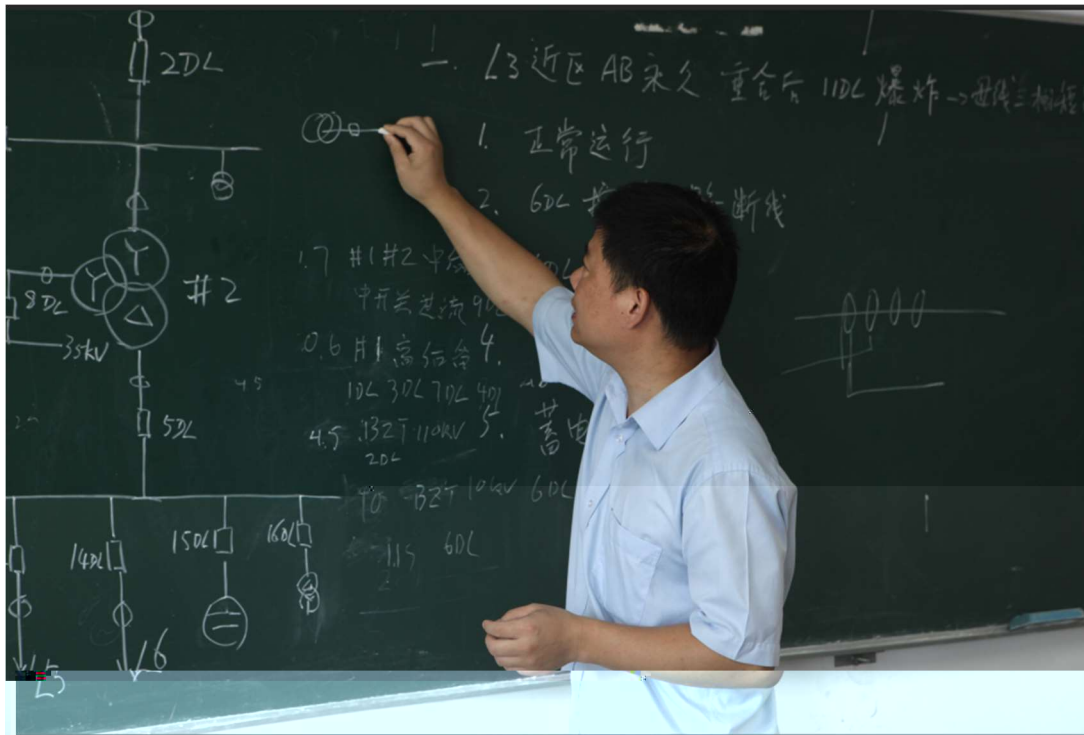 2DL
#2
8DL
35kV
5DL
14DL
15DL
16DL
L5
L6
一. L3近区AB永久 重合后 11DL 爆炸→母线三相短
1. 正常运行
2. 6DL 断线
1.7 #1#2中
中开关过流9DL
0.6 #1高后备 4.
1DL 3DL 7DL 4DL
4.5 BZT 110kV 5. 蓄电
2DL
BZT 10kV 6DL
6DL
4.5